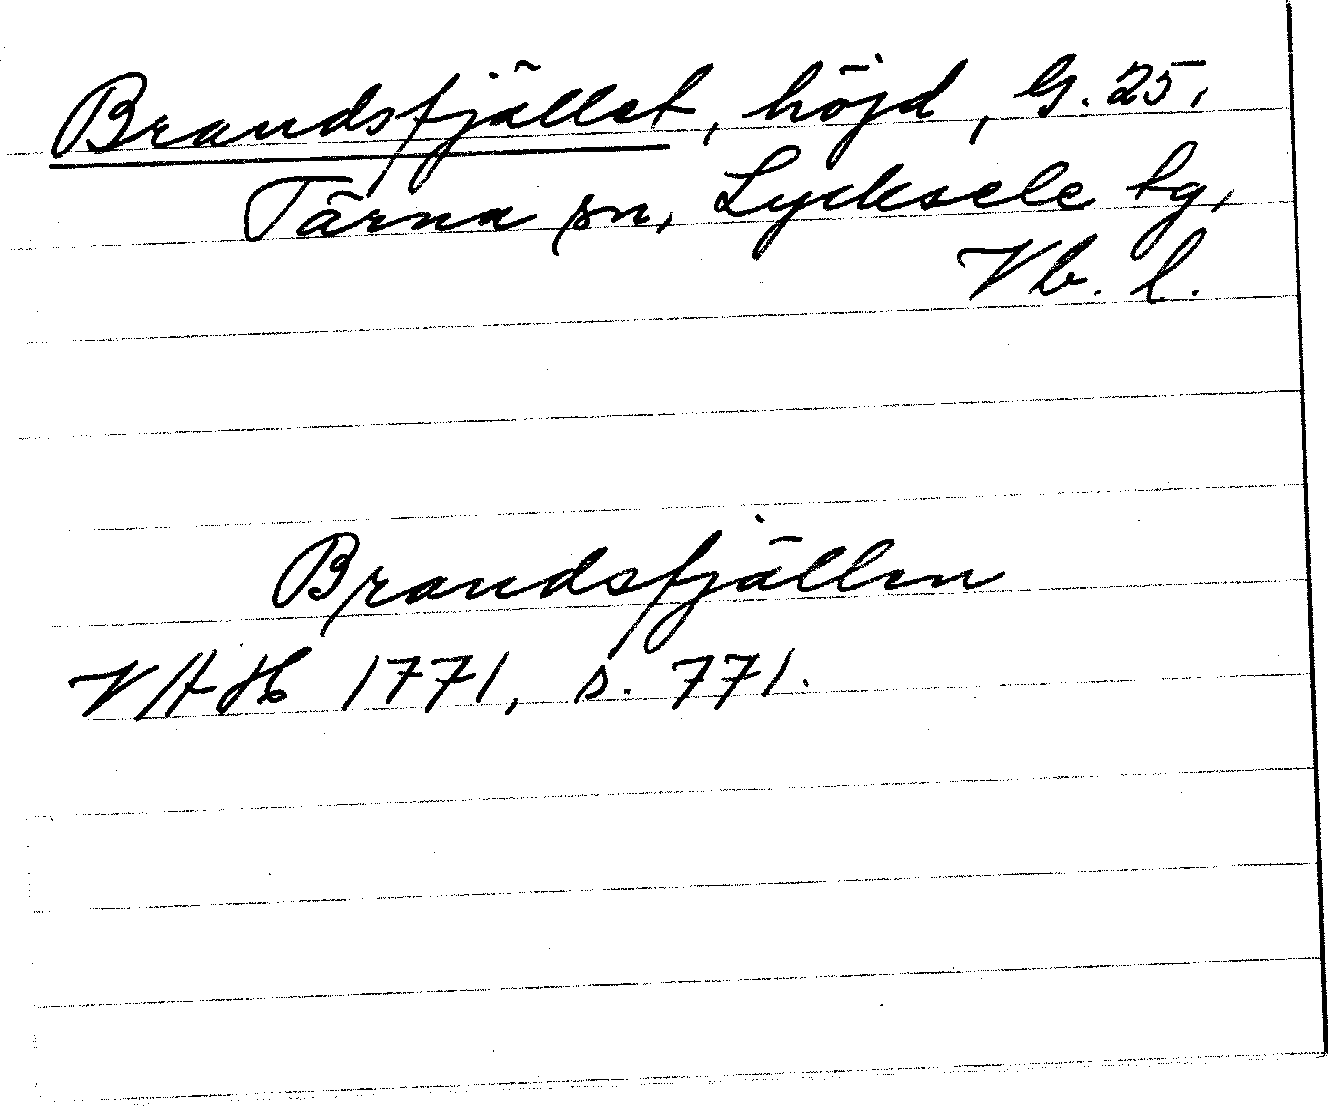 Brandsfjället, höjd, G. 25,
Tärna sn, Lycksele tg,
Vb. l.
Brandsfjällen
VHAH 1771, s. 771.